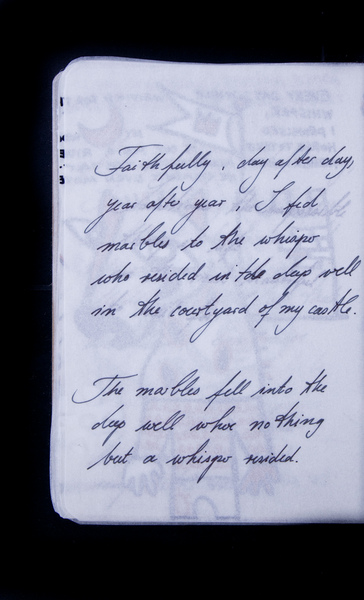 Faithfully, day after day,
year after year, I fed
marbles to the whisper
who resided in the deep well
in the courtyard of my castle.
The marbles fell into the
deep well where nothing
but a whisper resided.